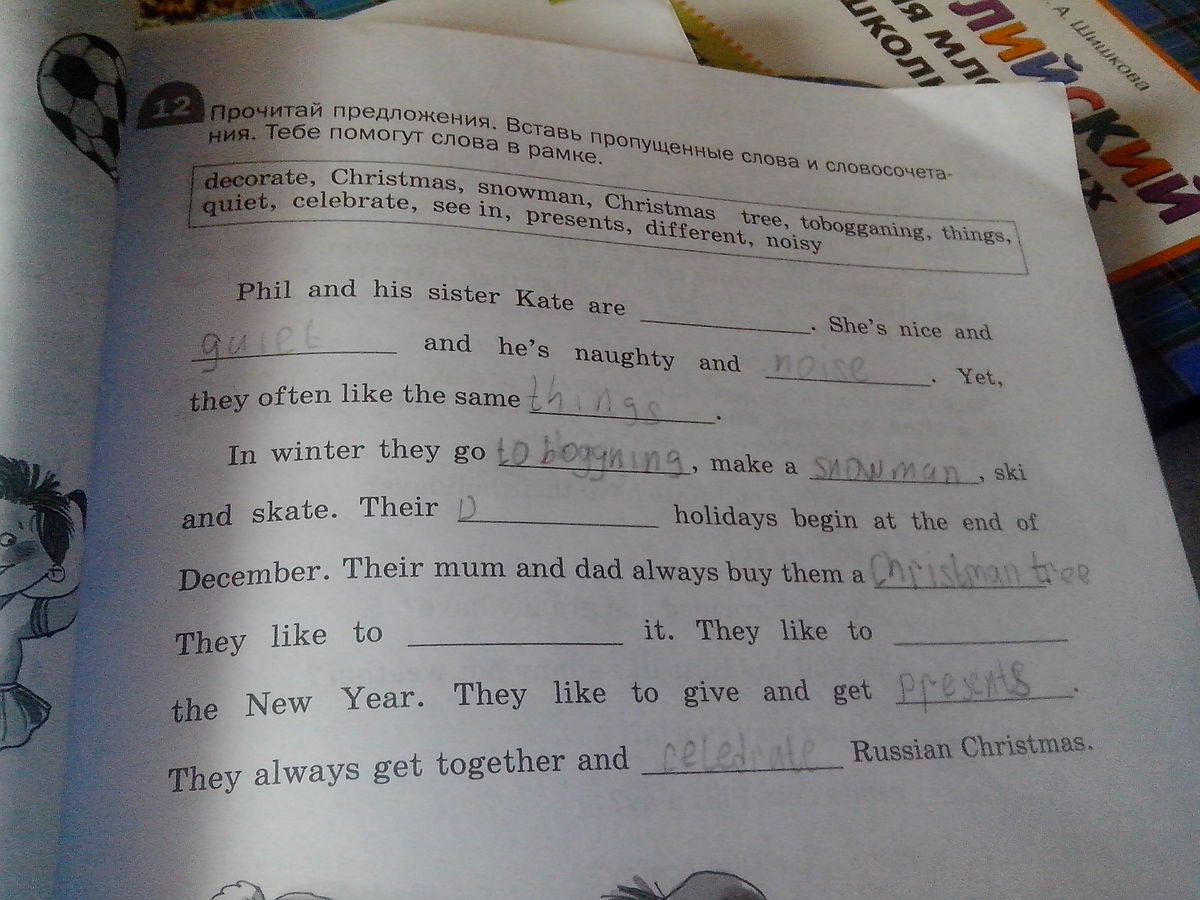 А. Шишкова
ЛИЙСКИЙ
12 Прочитай предложения. Вставь пропущенные слова и словосочета-
ния. Тебе помогут слова в рамке.
decorate, Christmas, snowman, Christmas tree, tobogganing, things,
quiet, celebrate, see in, presents, different, noisy
Phil and his sister Kate are ____________. She's nice and
quiet and he's naughty and noise. Yet,
they often like the same things.
In winter they go toboggning, make a snowman, ski
and skate. Their D____________ holidays begin at the end of
December. Their mum and dad always buy them a Christman tree.
They like to ____________ it. They like to ____________
the New Year. They like to give and get presents.
They always get together and celedrate Russian Christmas.